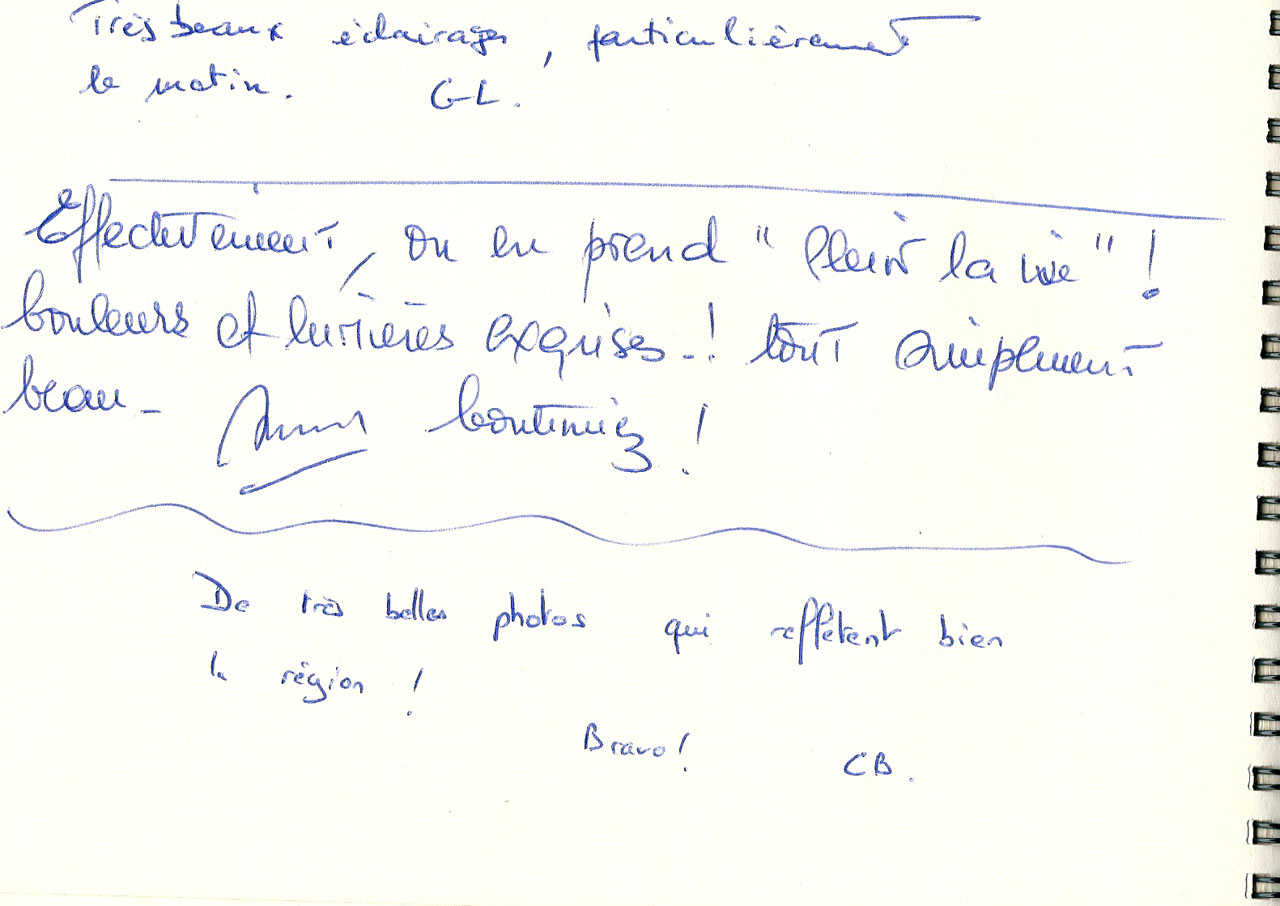 Très beaux éclairages, particulièrement
le matin. GL.
Effectivement, on en prend "plein la vie" !
Couleurs et lumières exquises-! tout simplement
beau- Continuez !
De très belles photos qui reflètent bien
la région !
Bravo! CB.